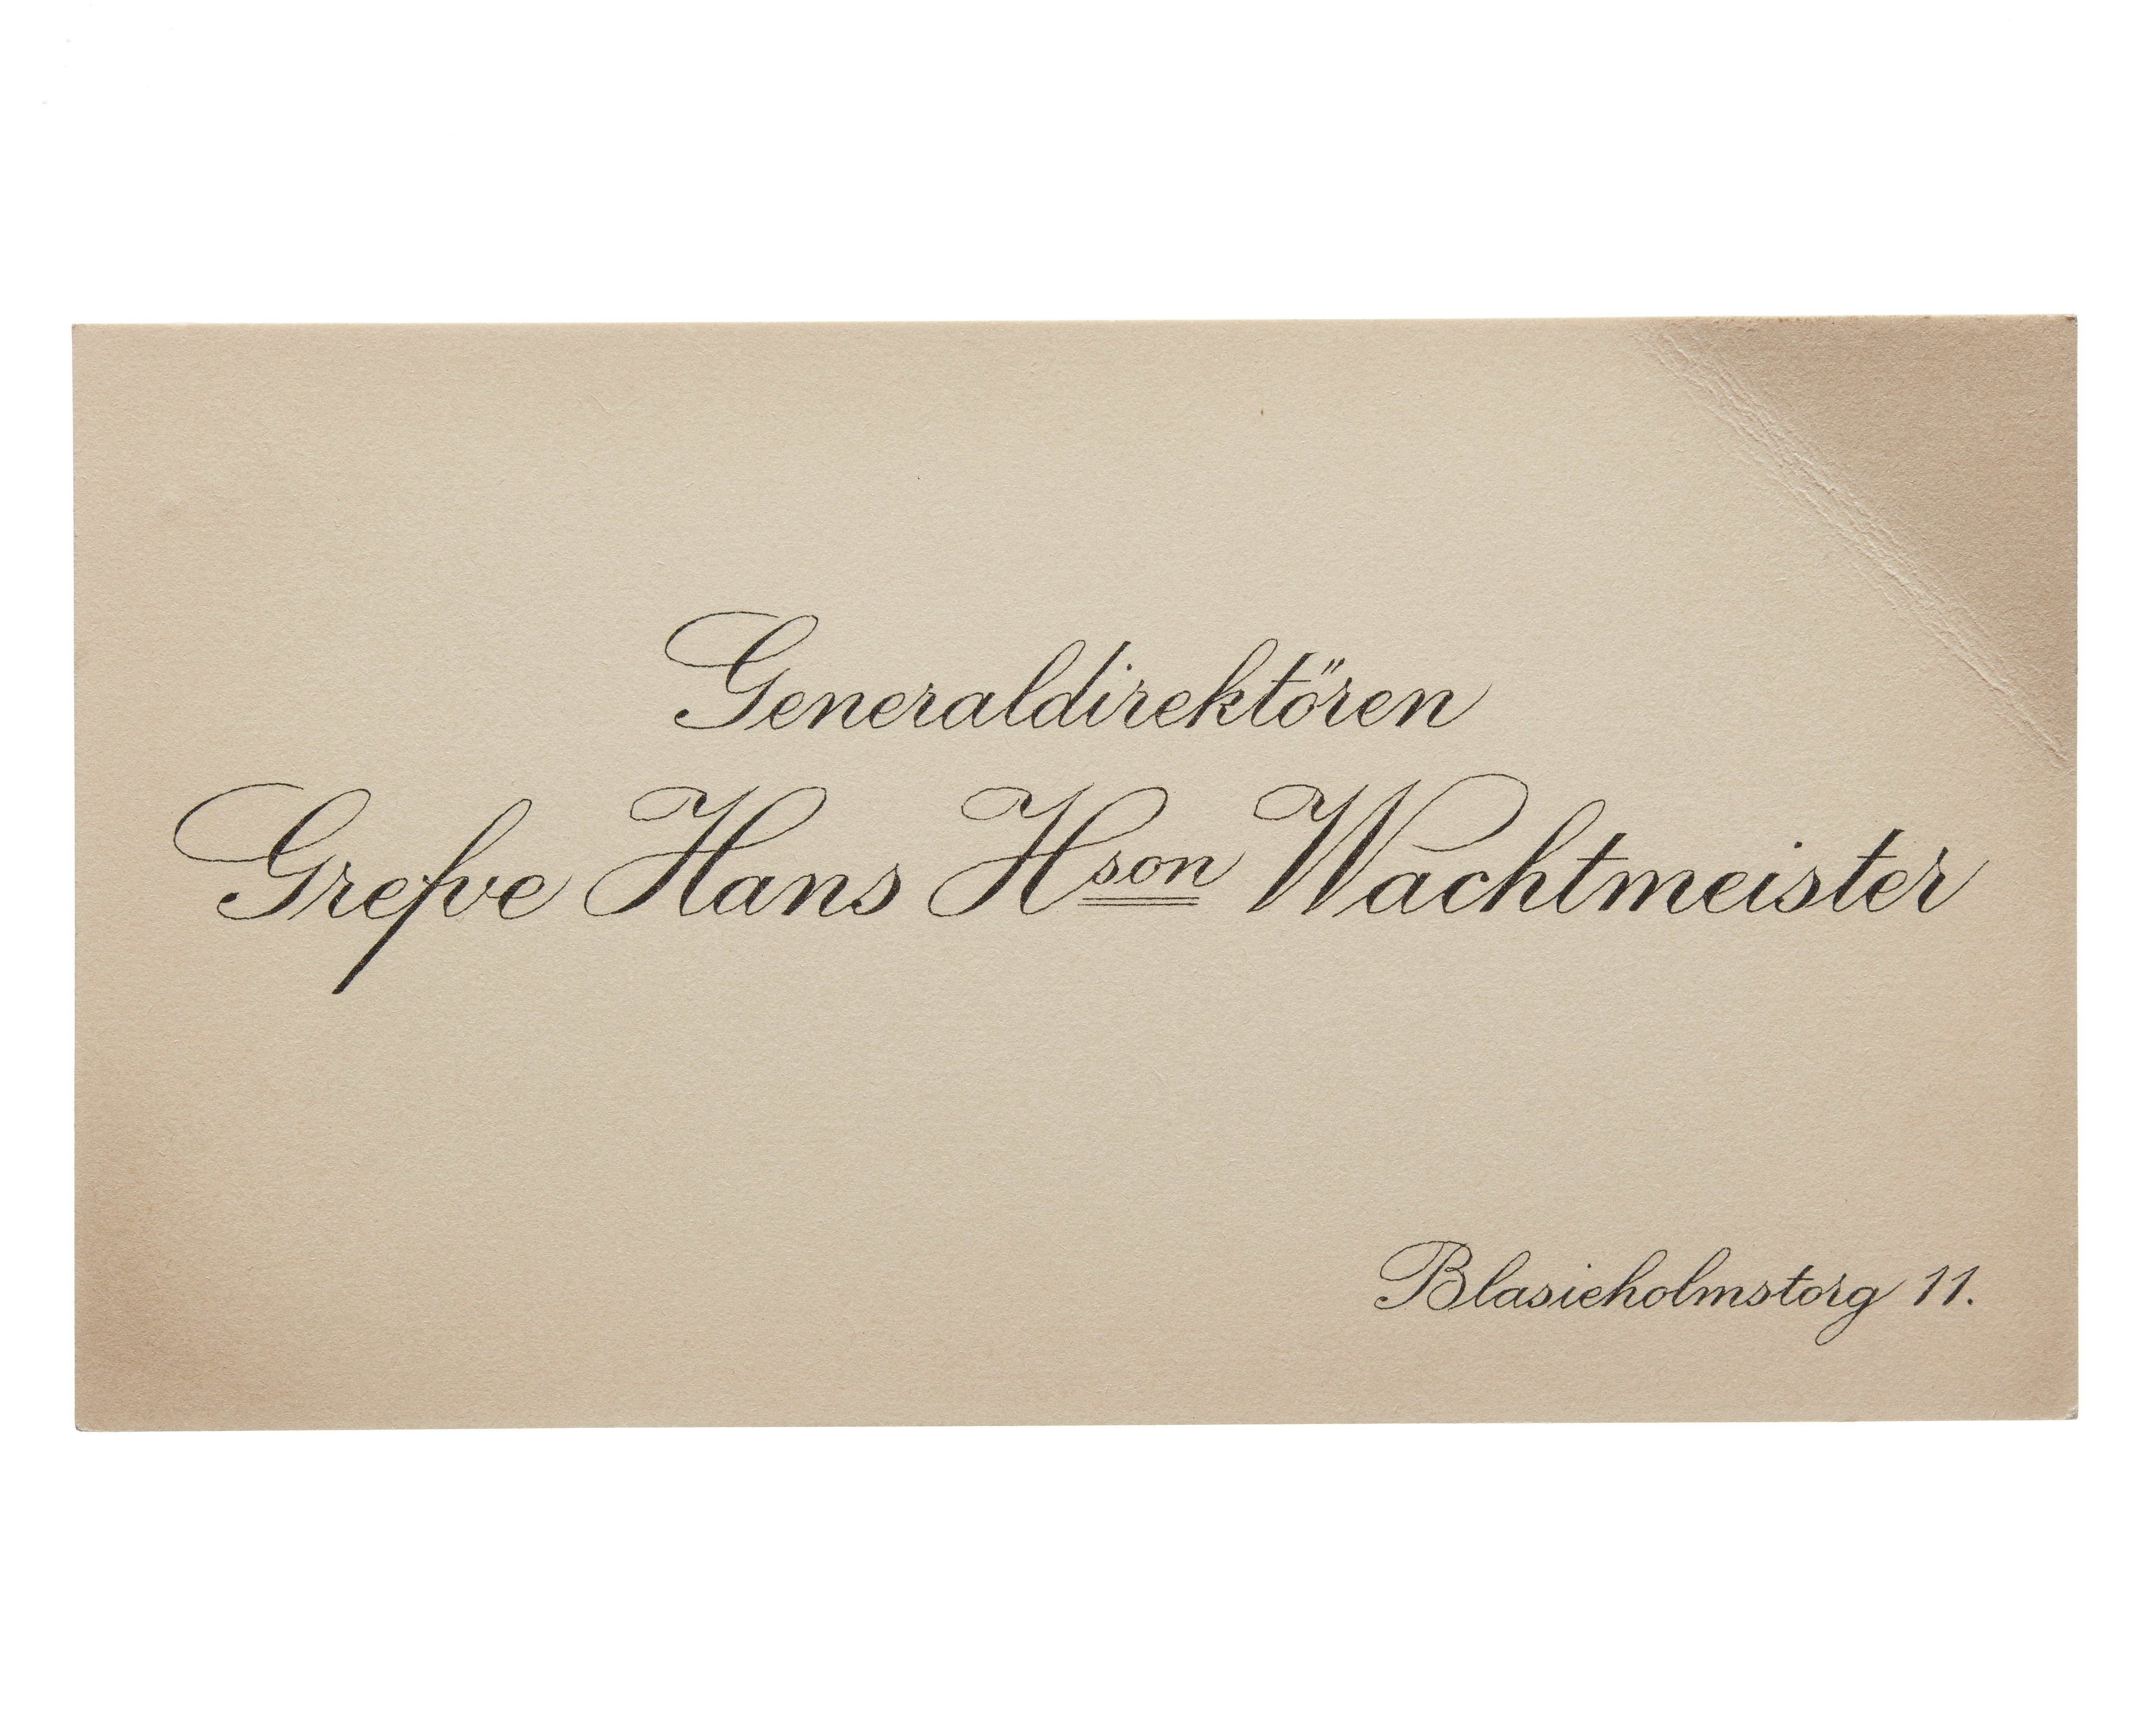 Generaldirektören
Grefve Hans Hson Wachtmeister
Blasieholmstorg 11.